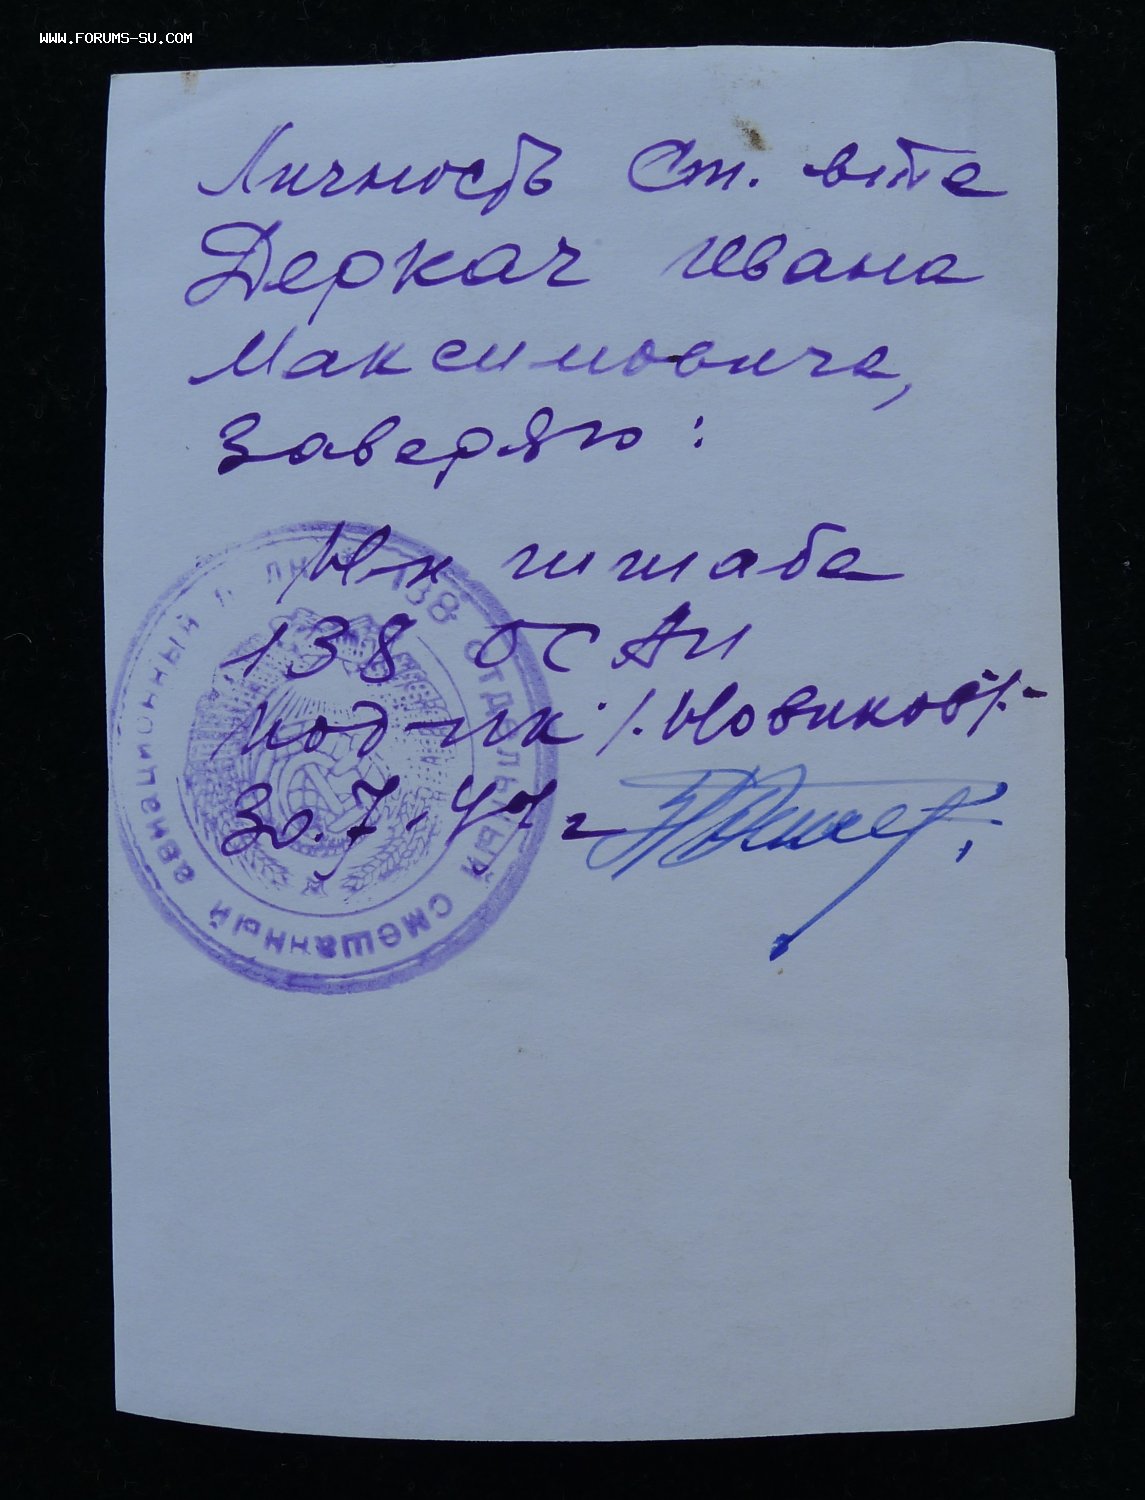 WWW.FORUMS-SU.COM
Личность Ст. в/те
Деркач Ивана
Максимовича,
Заверяю:
Н-к штаба
138 ОСАП
подп-к /Новиков/-
30.7-47 г
138 ОТДЕЛЬНЫЙ СМЕШАННЫЙ АВИАЦИОННЫЙ П